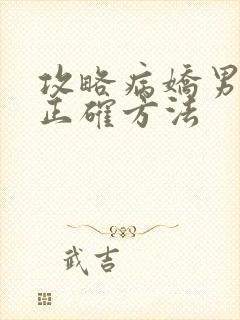 攻略病嬌男
正確方法
武吉